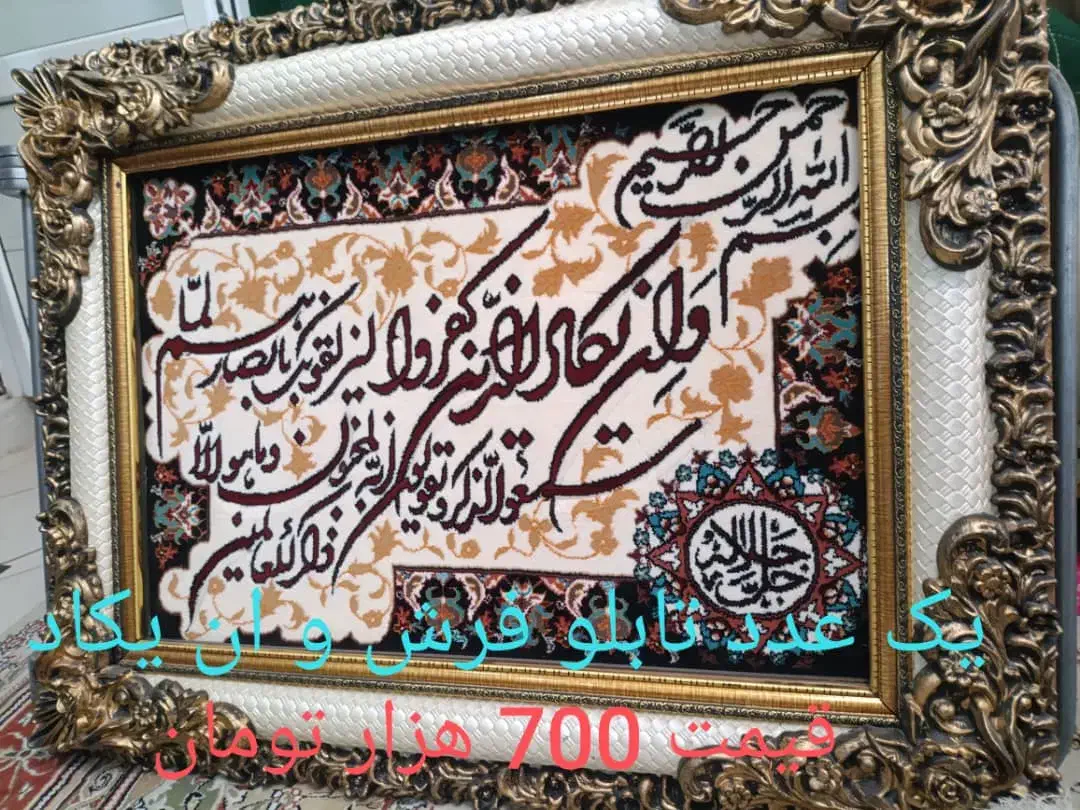 بسم الله الرحمن الرحیم
وَاِن یکاد الذین کفروا لیزلقونک بابصارهم لمّا
سمعوا الذکر و یقولون انّه لمجنون وما هو الّا
ذکر للعالمین
جل جلاله
یک عدد تابلو فرش و ان یکاد
قیمت 700 هزار تومان